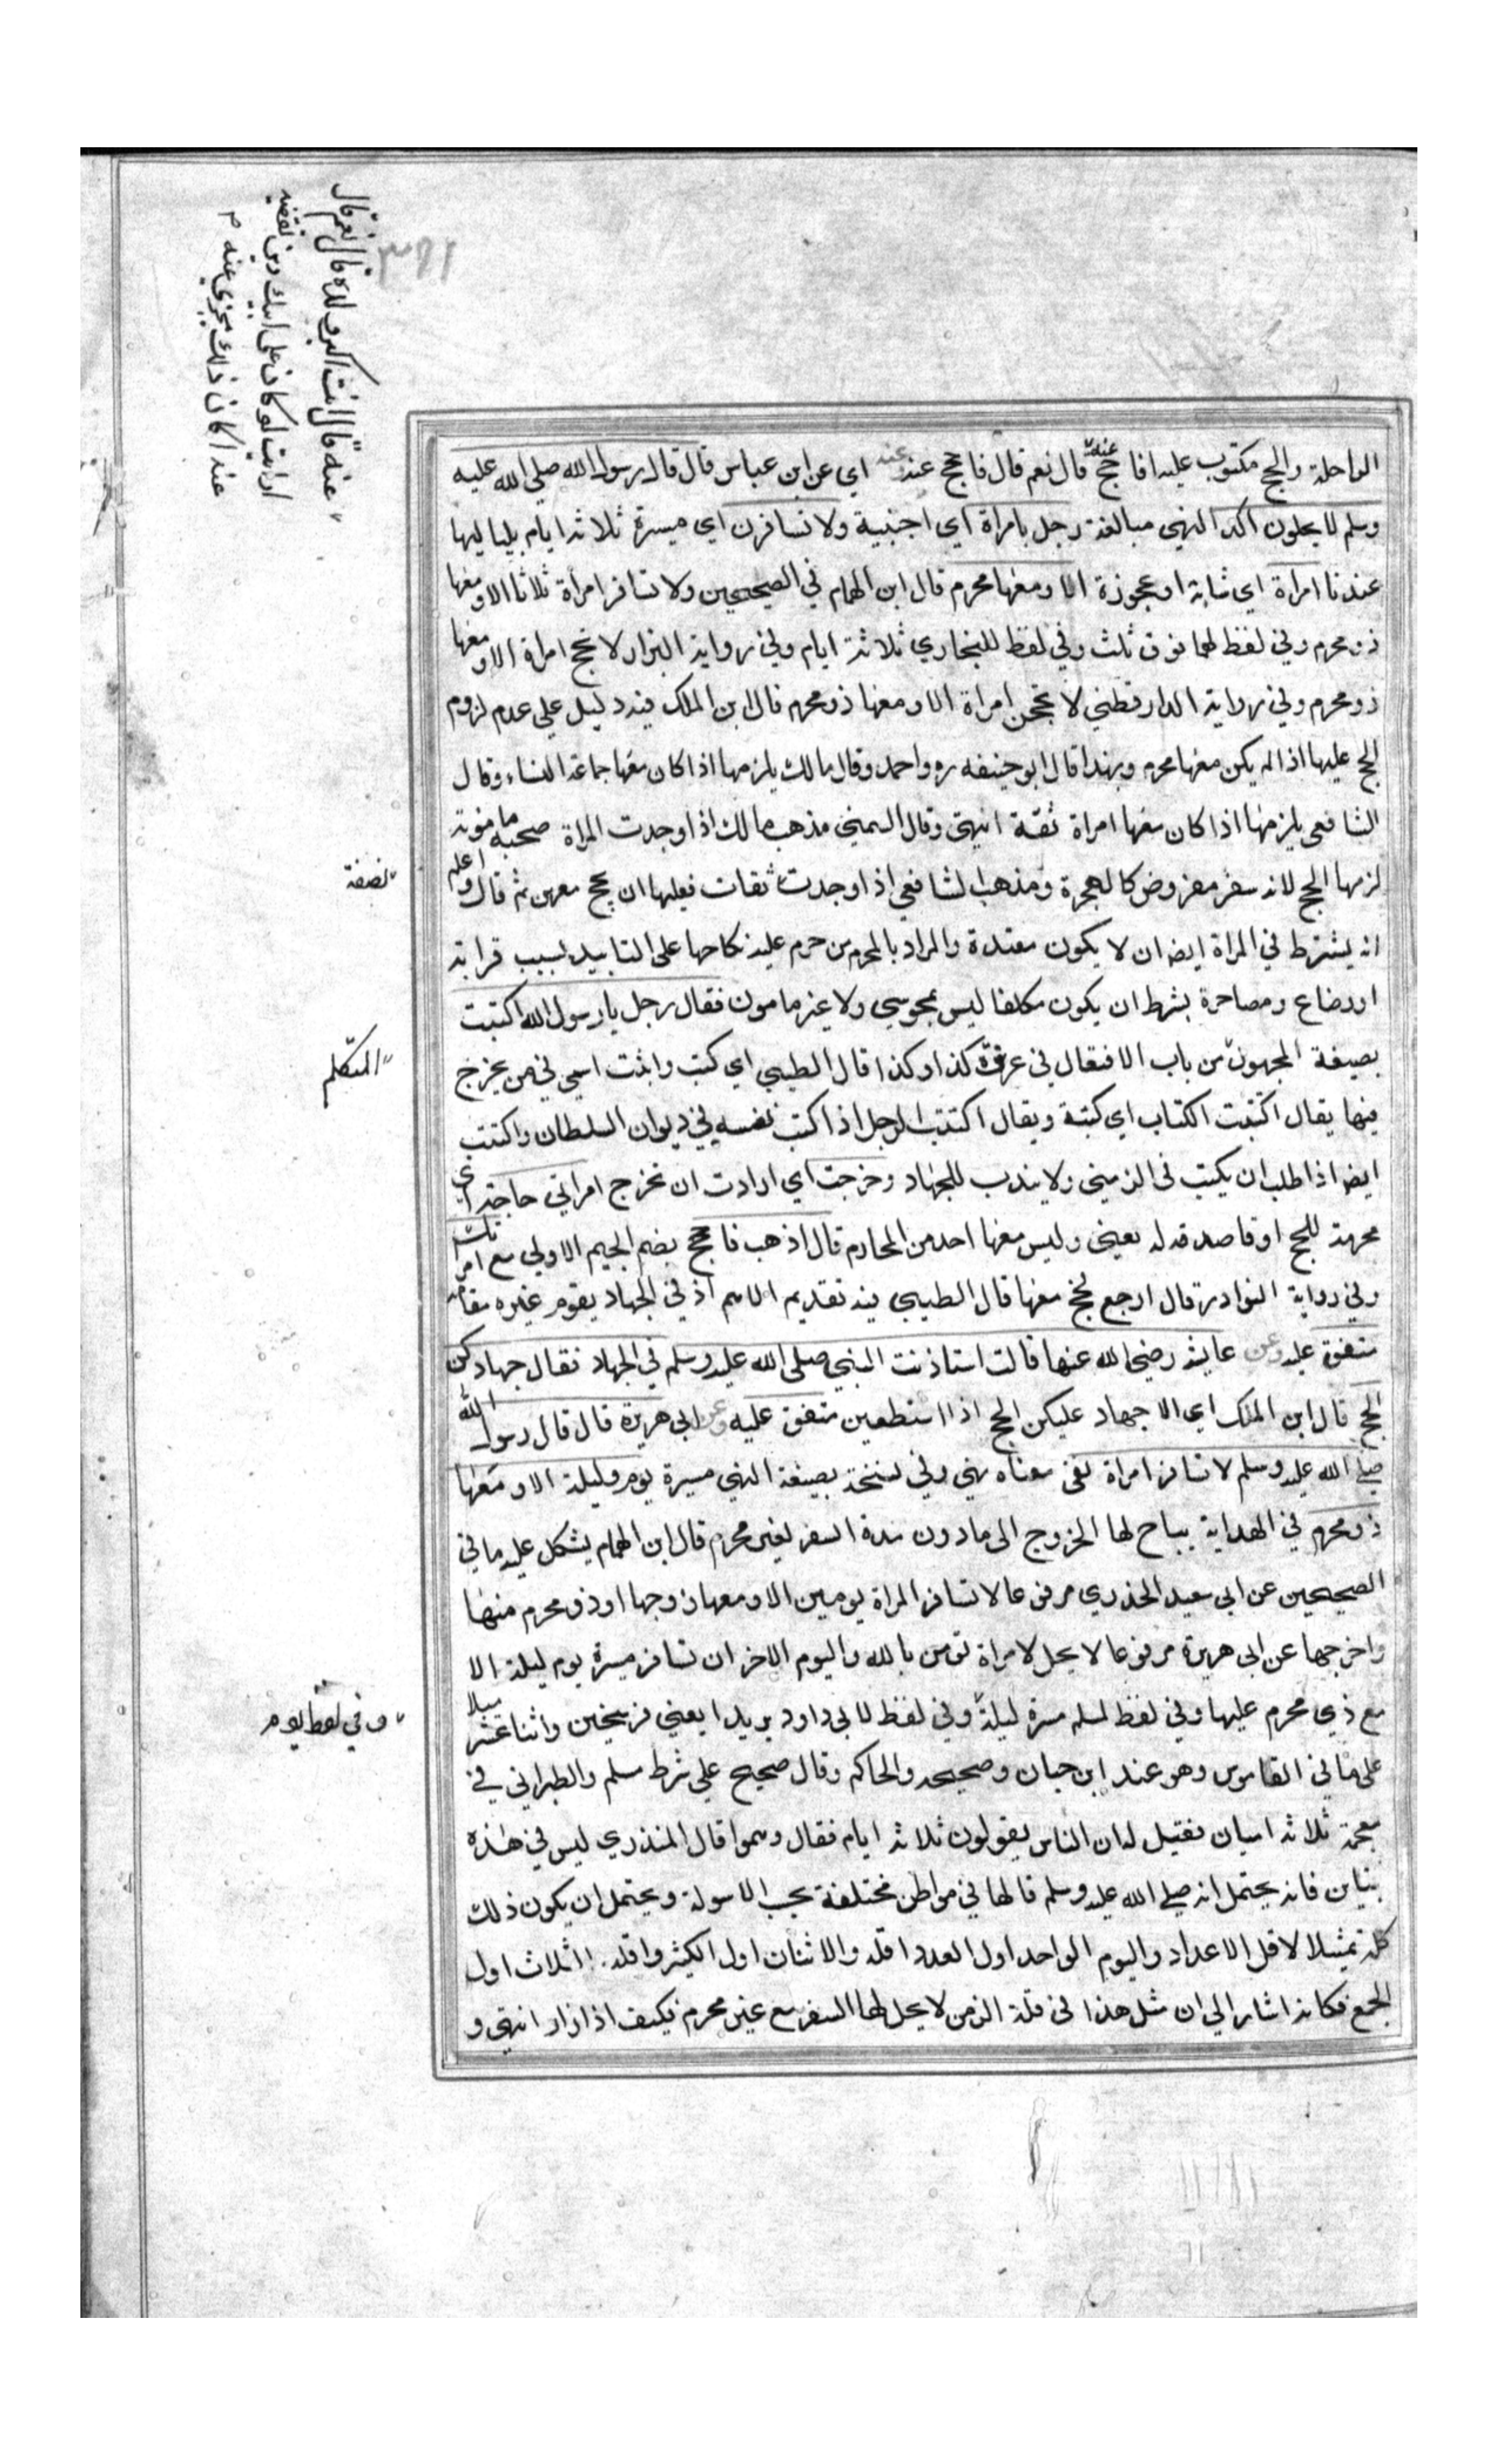 ٣٨١
عنه قال انت اكبر ولده قال نعم قال
ارايت لو كان على ابيك دين تقضيه
عنه اكان ذلك يجزي عنه م
الراحلة والحج مكتوب عليه افاحج عنه قال نعم قال فاحجج عنه وعنه اي عن ابن عباس قال قال رسول الله صلى الله عليه
وسلم لا يخلون اكد النهي مبالغة رجل بامراة اي اجنبية ولا تسافرن اي ميسرة ثلاثة ايام بلياليها
عندنا امراة اي شابة او عجوزة الا ومعها محرم قال ابن الهمام في الصحيحين ولا تسافر امرأة ثلاثا الا ومعها
ذو محرم وفي لفظ لهما فوق ثلث وفي لفظ للبخاري ثلاثة ايام وفي رواية البزار لا تحج امراة الا ومعها
ذو محرم وفي رواية الدارقطني لا تحجن امراة الا ومعها ذو محرم قال ابن الملك فيه دليل علي عدم لزوم
الحج عليها اذا لم يكن معها محرم وبهذا قال ابو حنيفه ره واحمد وقال مالك يلزمها اذا كان معها جماعة النساء وقال
الشافعي يلزمها اذا كان معها امراة ثقة انتهى وقال الشمني مذهب مالك اذا وجدت المراة صحبه مامونة
لزمها الحج لانه سفر مفروض كالهجرة ومذهب الشافعي اذا وجدت ثقات فعليها ان تحج معهن ثم قال واعلم
نصفة
انه يشترط في المراة ايضا ان لا يكون معتدة والمراد بالمحرم من حرم عليه نكاحها على التابيد بسبب قرابة
او رضاع ومصاهرة بشرط ان يكون مكلفا ليس بمجوسي ولا غير مامون فقال رجل يا رسول الله اكتتبت
بصيغة المجهول من باب الافتعال في غزوة كذا وكذا قال الطيبي اي كتب واثبت اسمي في من يخرج
المتكلم
فيها يقال اكتتبت الكتاب اي كتبة ويقال اكتتب الرجل اذا كتب نفسه في ديوان السلطان واكتتب
ايضا اذا طلب ان يكتب في الزمنى ولا يندب للجهاد وخرجت اي ارادت ان تخرج امراتي حاجة اي
محرمة للحج او قاصدة له يعني وليس معها احد من المحارم قال اذهب فاحجج بضم الجيم الاولي مع امراتك
وفي رواية النوادر قال ارجع فحج معها قال الطيبي فيه تقديم الاهم اذ في الجهاد يقوم غيره مقامه
متفق عليه وعن عايشة رضي الله عنها قالت استاذنت النبي صلى الله عليه وسلم في الجهاد فقال جهادكن
الحج قال ابن الملك اي لا جهاد عليكن الحج اذا استطعين متفق عليه وعن ابي هريرة قال قال رسول الله
صلي الله عليه وسلم لا تسافر امراة نفي معناه نهي وفي نسخة بصيغة النهي مسيرة يوم وليلة الا ومعها
ذو محرم في الهداية يباح لها الخروج الى ما دون مدة السفر لغير محرم قال ابن الهمام يشكل عليه ما في
الصحيحين عن ابي سعيد الخدري مرفوعا لا تسافر المراة يومين الا ومعها زوجها او ذو محرم منها
واخرجها عن ابى هريرة مرفوعا لا يحل لامراة تومن بالله واليوم الاخر ان تسافر مسيرة يوم ليلة الا
مع ذي محرم عليها وفي لفظ لمسلم مسيرة ليلة وفي لفظ لابي داود بريدا يعني فرسخين واثنا عشر ميلا
وفي لفظ يوم
على ما في القاموس وهو عند ابن حبان وصحيحه والحاكم وقال صحيح علي شرط مسلم والطبراني في
معجمه ثلاثة اميال فقيل له ان الناس يقولون ثلاثة ايام فقال وهموا قال المنذري ليس في هذه
تباين فانه يحتمل انه صلي الله عليه وسلم قالها في مواطن مختلفة بحسب الاسولة ويحتمل ان يكون ذلك
كله تمثيلا لاقل الاعداد واليوم الواحد اول العدد اقله والاثنان اول الكثير واقله الثلاث اول
الجمع فكانه اشار الي ان مثل هذا في قلة الزمن لا يحل لها السفر مع غير محرم فكيف اذا زاد انتهي و